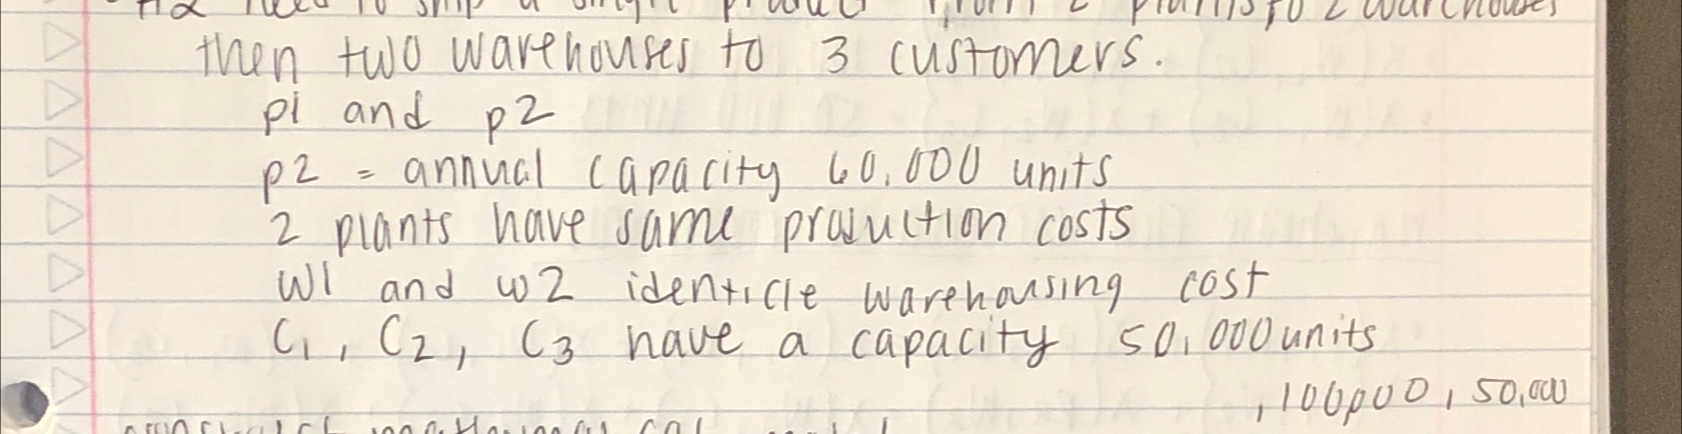 need to ship a single product from 2 plants to 2 warehouses
then two warehouses to 3 customers.
p1 and p2
p2 = annual capacity 60,000 units
2 plants have same production costs
W1 and W2 identicle warehousing cost
C1, C2, C3 have a capacity 50,000 units
, 100,000, 50,000